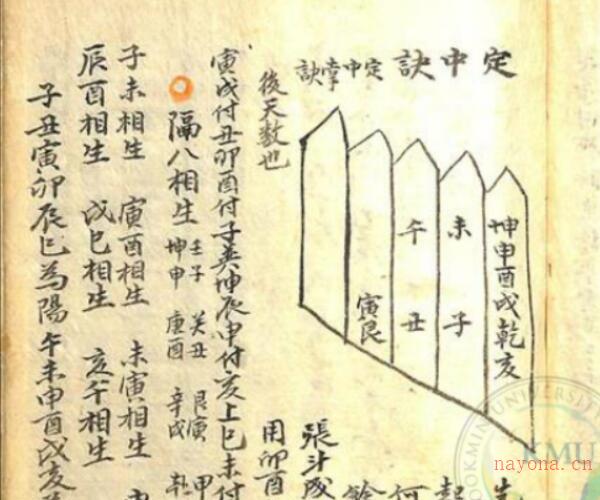 定中訣 定中掌訣
坤申酉戌乾亥
未 子
午 丑
寅艮
張斗
用卯酉
後天数也
寅戌付丑卯酉付子巽坤辰申付亥上巳未付
隔八相生 壬子 癸丑 艮寅 甲
坤申 庚酉 辛戌 乾
子未相生 寅酉相生 未寅相生
辰酉相生 戌巳相生 亥午相生
子丑寅卯辰巳為陽午未申酉戌亥
OOKMIN UNIVERSITY
KMU
nayona.cn